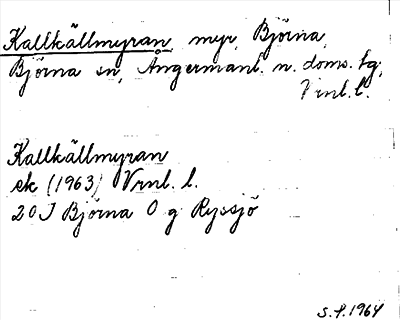 Kallkällmyran, myr, Björna,
Björna sn, Ångermanl. n. doms. tg,
Vrnl. l.
Kallkällmyran
ek (1963) Vrnl. l.
20J Björna O g Ryssjö
S.F. 1964